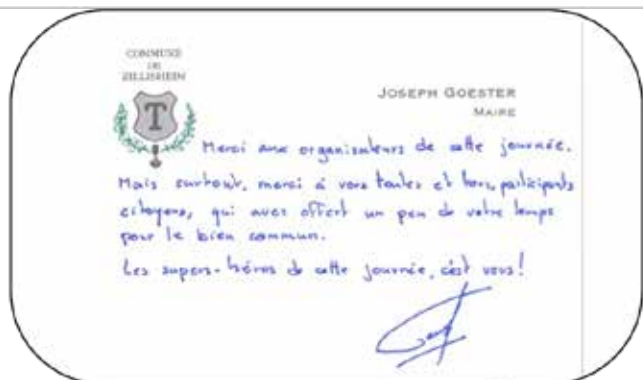 COMMUNE
DE
ZILLISHEIM
T
JOSEPH GOESTER
MAIRE
Merci aux organisateurs de cette journée.
Mais surtout, merci à vous toutes et tous, participants
citoyens, qui avez offert un peu de votre temps
pour le bien commun.
Les supers-héros de cette journée, c'est vous!